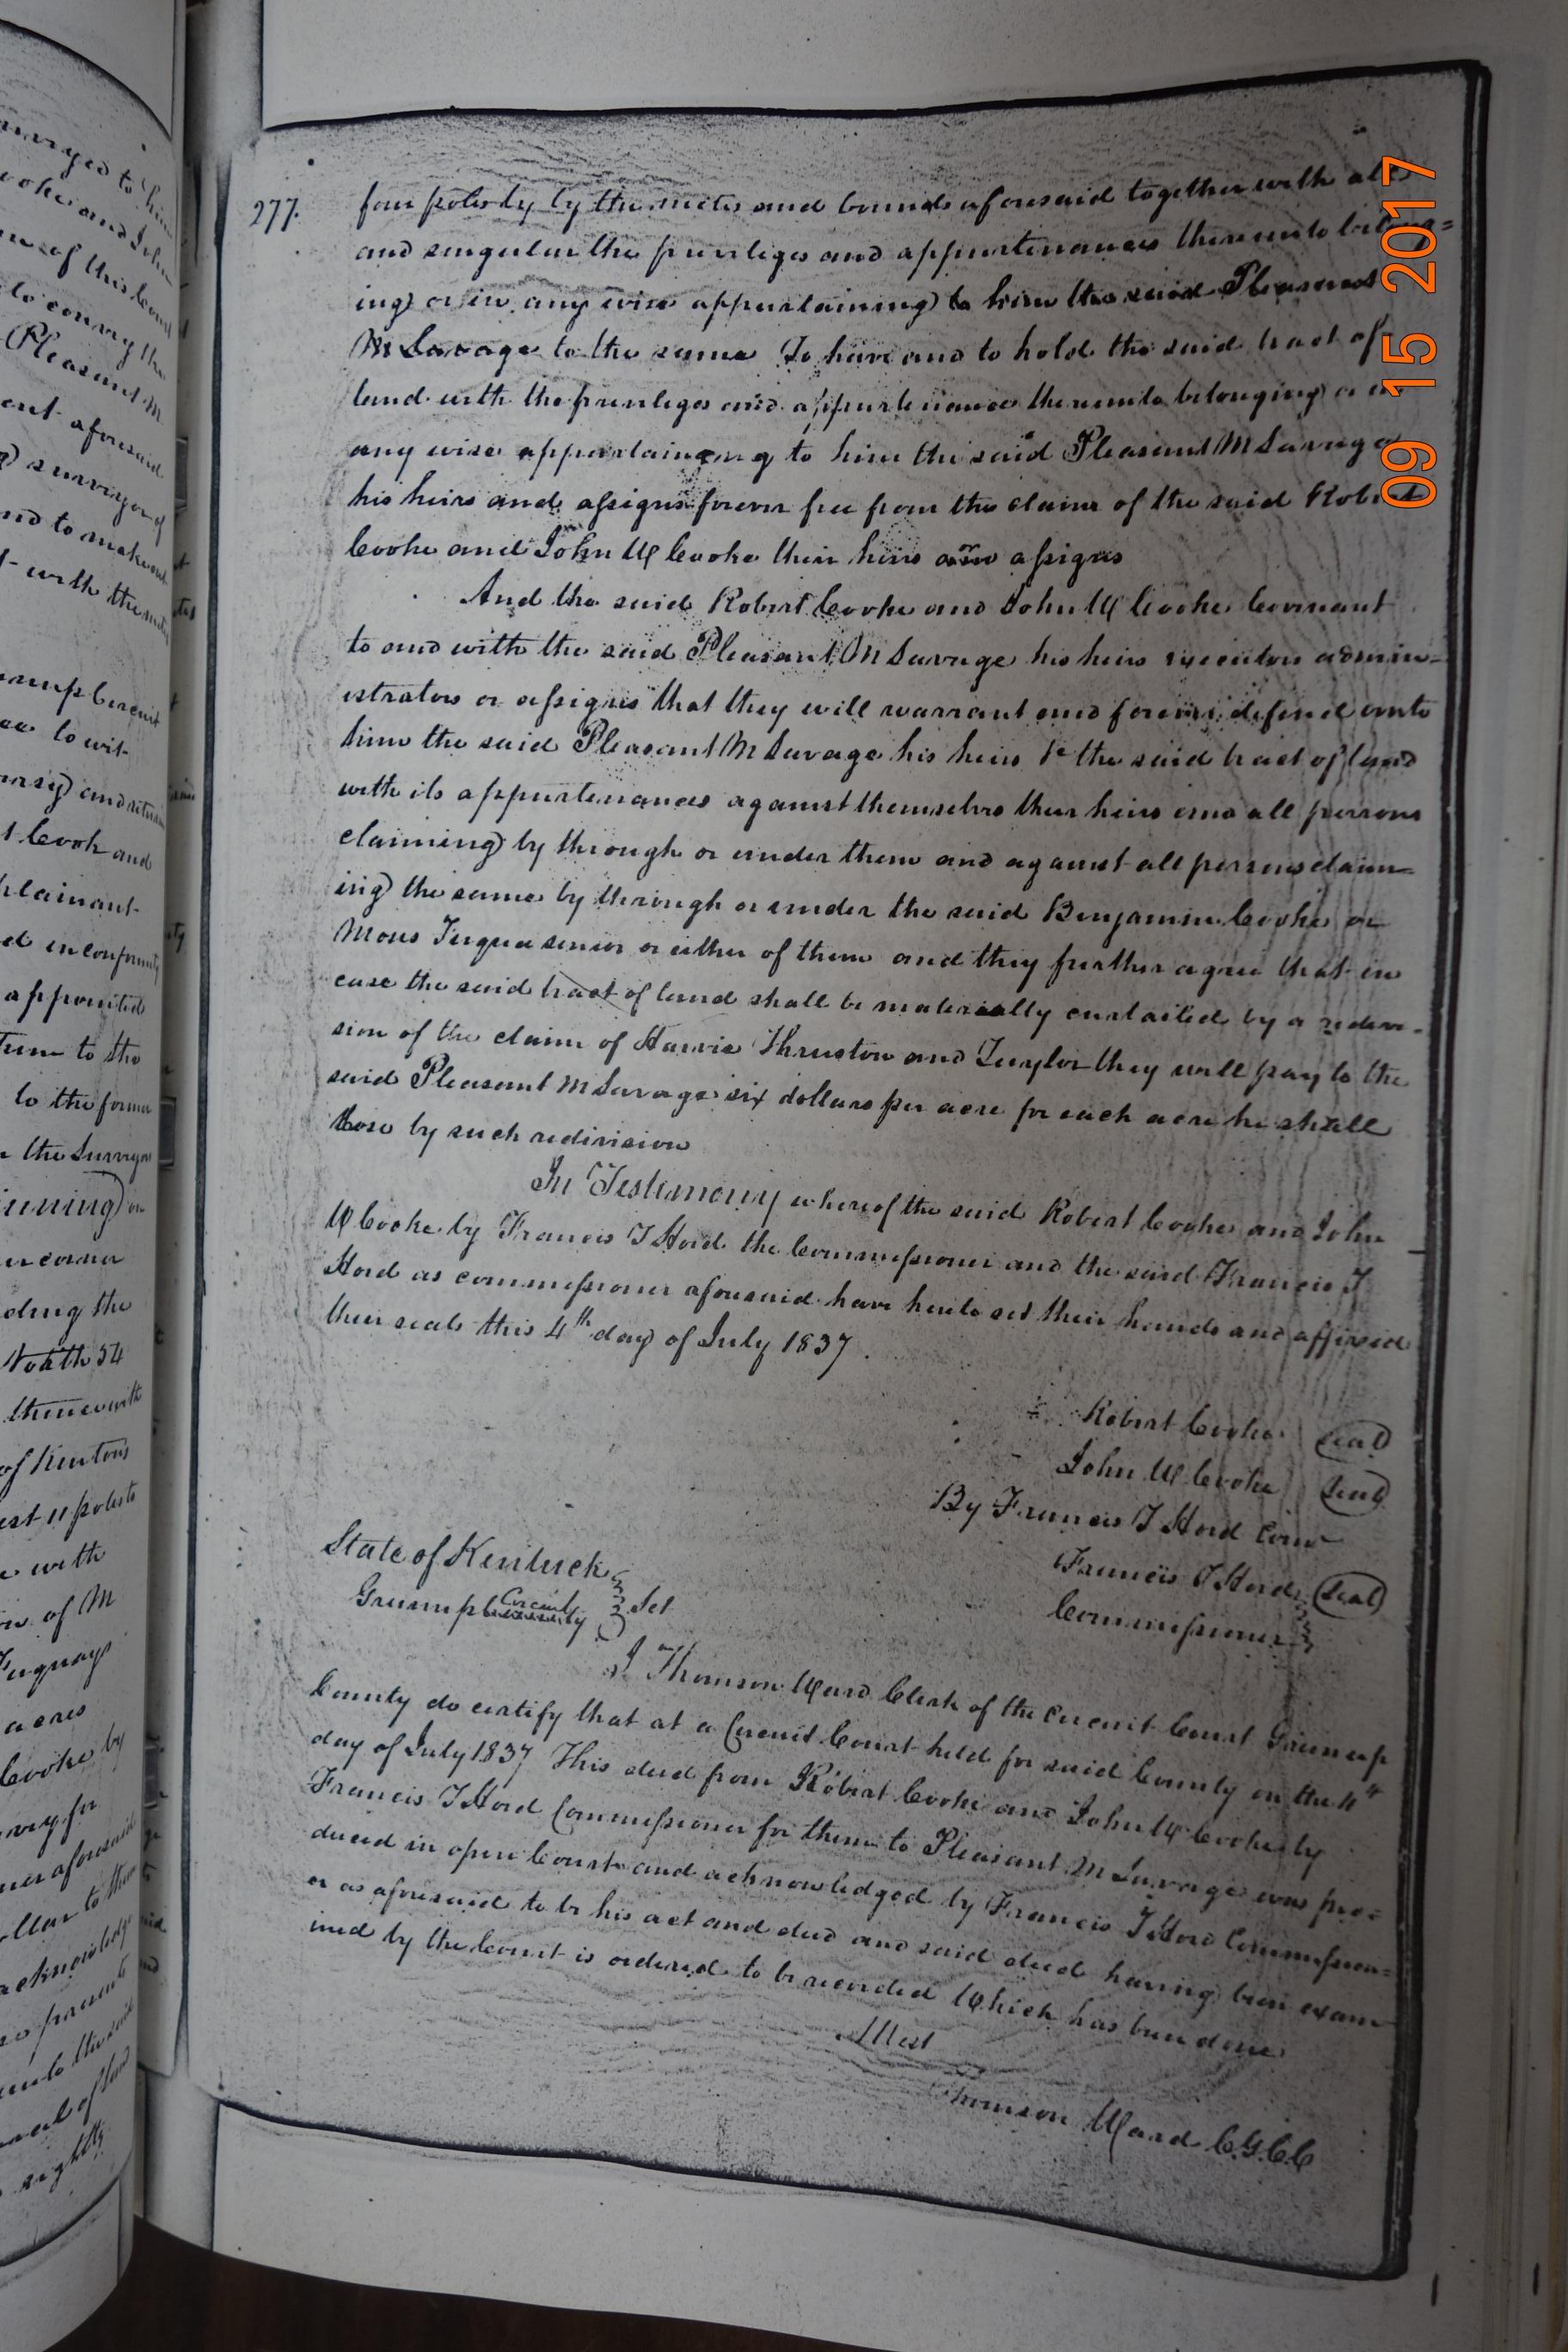 277.
four poles by by the metes and bounds aforesaid together with all
and singular the privileges and appurtenances thereunto belong=
ing or in any wise appertaining to him the said Pleasant
M Savage to the same To have and to hold the said tract of
land with the privileges and appurtenances thereunto belonging or in
any wise appertaining to him the said Pleasant M Savage
his heirs and assigns forever free from the claim of the said Robert
Cooke and John W Cooke their heirs or assigns
And the said Robert Cooke and John W Cooke Covenant
to and with the said Pleasant M Savage his heirs executors admin=
istrators or assigns that they will warrant and forever defend unto
him the said Pleasant M Savage his heirs &c the said tract of land
with its appurtenances against themselves their heirs and all persons
claiming by through or under them and against all persons claim=
ing the same by through or under the said Benjamin Cooke or
Moses Fuqua senior or either of them and they further agree that in
case the said tract of land shall be materially curtailed by a redivi-
sion of the claim of Harvie Thruston and Taylor they will pay to the
said Pleasant M Savage six dollars per acre for each acre he shall
lose by such redivision
In Testimony whereof the said Robert Cooke and John
W Cooke by Francis T Hord the Commissioner and the said Francis T
Hord as commissioner aforesaid have hereto set their hands and affixed
their seals this 4th day of July 1837.
Robert Cooke seal
John W Cooke seal
By Francis T Hord Com
Francis T Hord seal
Commissioner
State of Kentucky
Greenup Circuit Sct
I Thomson Ward Clerk of the Circuit Court Greenup
County do certify that at a Circuit Court held for said County on the 4th
day of July 1837 This deed from Robert Cooke and John W Cooke by
Francis T Hord Commissioner for them to Pleasant M Savage was pro=
duced in open Court and acknowledged by Francis T Hord Commission=
er as aforesaid to be his act and deed and said deed having been exam
ined by the Court is ordered to be recorded Which has been done
Attest
Thomson Ward C.G.C.C
09 15 2017